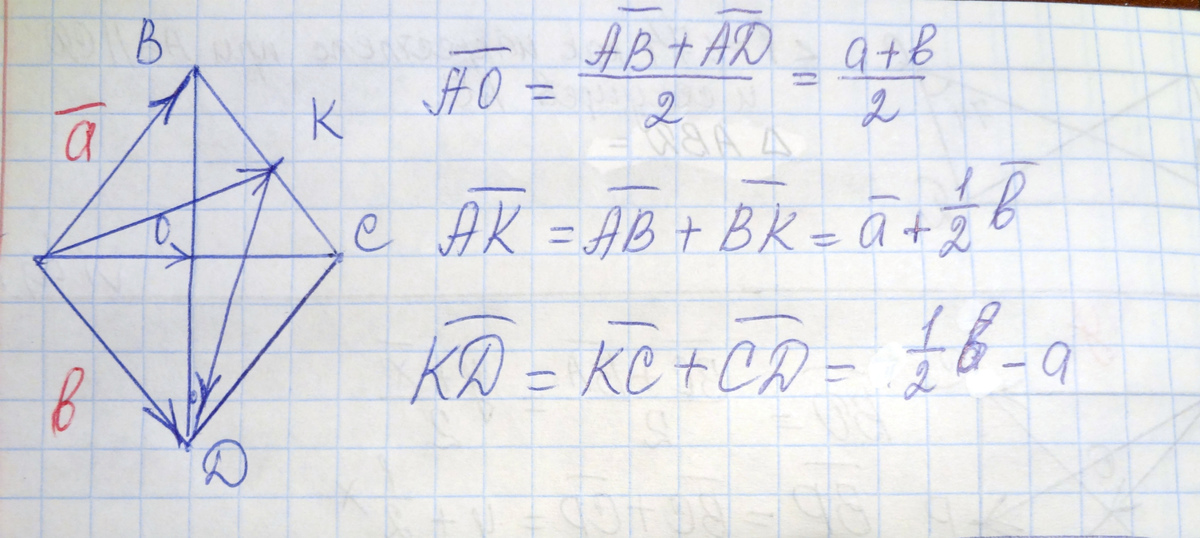 B
a̅
K
O
C
в
D
A̅O̅ = (A̅B̅ + A̅D̅)/2 = (a + в)/2
A̅K̅ = A̅B̅ + B̅K̅ = a̅ + 1/2 в̅
K̅D̅ = K̅C̅ + C̅D̅ = 1/2 в - a